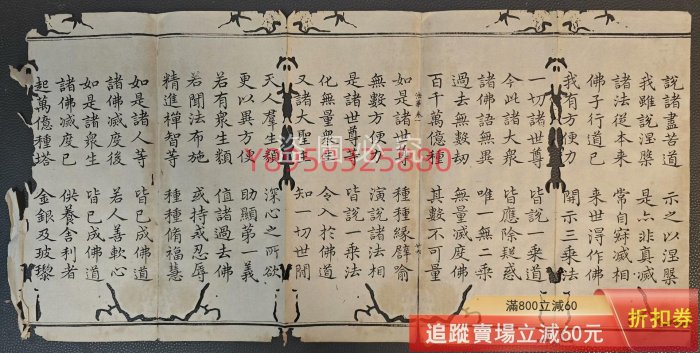 說諸盡苦道 示之以涅槃
我雖說涅槃 是亦非真滅
諸法從本來 常自寂滅相
佛子行道已 來世得作佛
我有方便力 開示三乘法
一切諸世尊 皆說一乘道
今此諸大眾 皆應除疑惑
諸佛語無異 唯一無二乘
過去無數劫 無量滅度佛
百千萬億種 其數不可量
如是諸世尊 種種緣譬喻
無數方便力 演說諸法相
是諸世尊等 皆說一乘法
化無量眾生 令入於佛道
又諸大聖主 知一切世間
天人羣生類 深心之所欲
更以異方便 助顯第一義
若有衆生類 值諸過去佛
若聞法布施 或持戒忍辱
精進禪智等 種種脩福慧
如是諸人等 皆已成佛道
諸佛滅度後 若人善軟心
如是諸衆生 皆已成佛道
諸佛滅度已 供養舍利者
起萬億種塔 金銀及玻瓈
盜圖必究
滿800立減60
追蹤賣場立減60元
折扣券